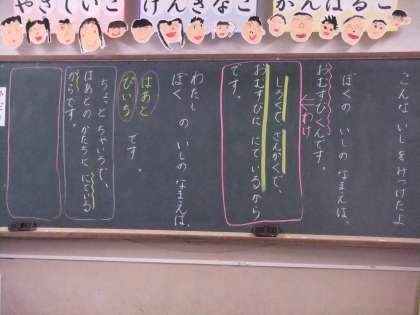 やさしいこ
げんきなこ
がんばるこ
こんな いしを みつけたよ
ぼくの いしの なまえは、
おむすびくんです。
わけ
しろくて さんかくで、
おむすびに にているから
です。
わたし
ぼく の いしの なまえは、
はあと
ぴいち
です。
ちょっと ちゃいろで、
はあとの かたちに にている
からです。